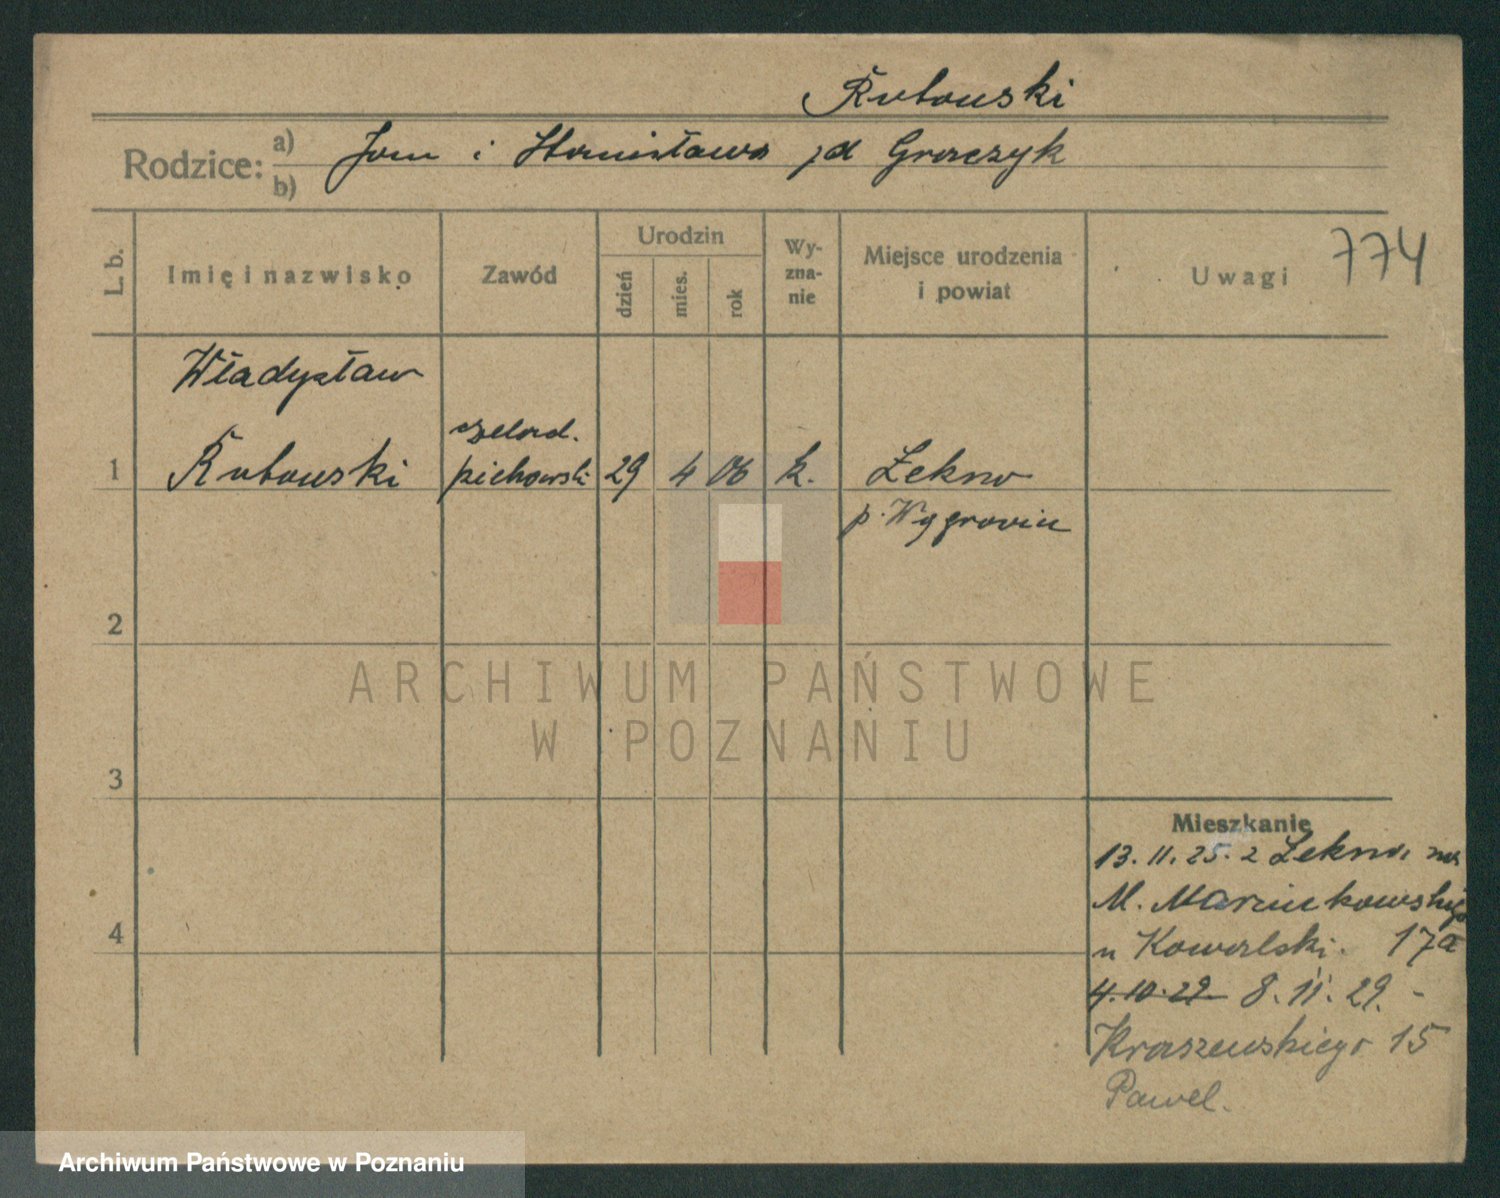 Rutowski
Rodzice: a) Jan i Stanisława zd Graczyk
b)
L. b.
Imię i nazwisko
Zawód
Urodzin
dzień
mies.
rok
Wy-
zna-
nie
Miejsce urodzenia
i powiat
Uwagi
774
Władysław
czelad.
1 Rutowski piekarski 29 4 06 k. Łekno
p. Wągrowiec
2
3
4
Mieszkanie
13. 11. 25. z Łekna na
M. Marcinkowskiego
u Kowalski. 17a
4.10.29 8. 11. 29. -
Kraszewskiego 15
Paweł.
ARCHIWUM PAŃSTWOWE
W POZNANIU
Archiwum Państwowe w Poznaniu